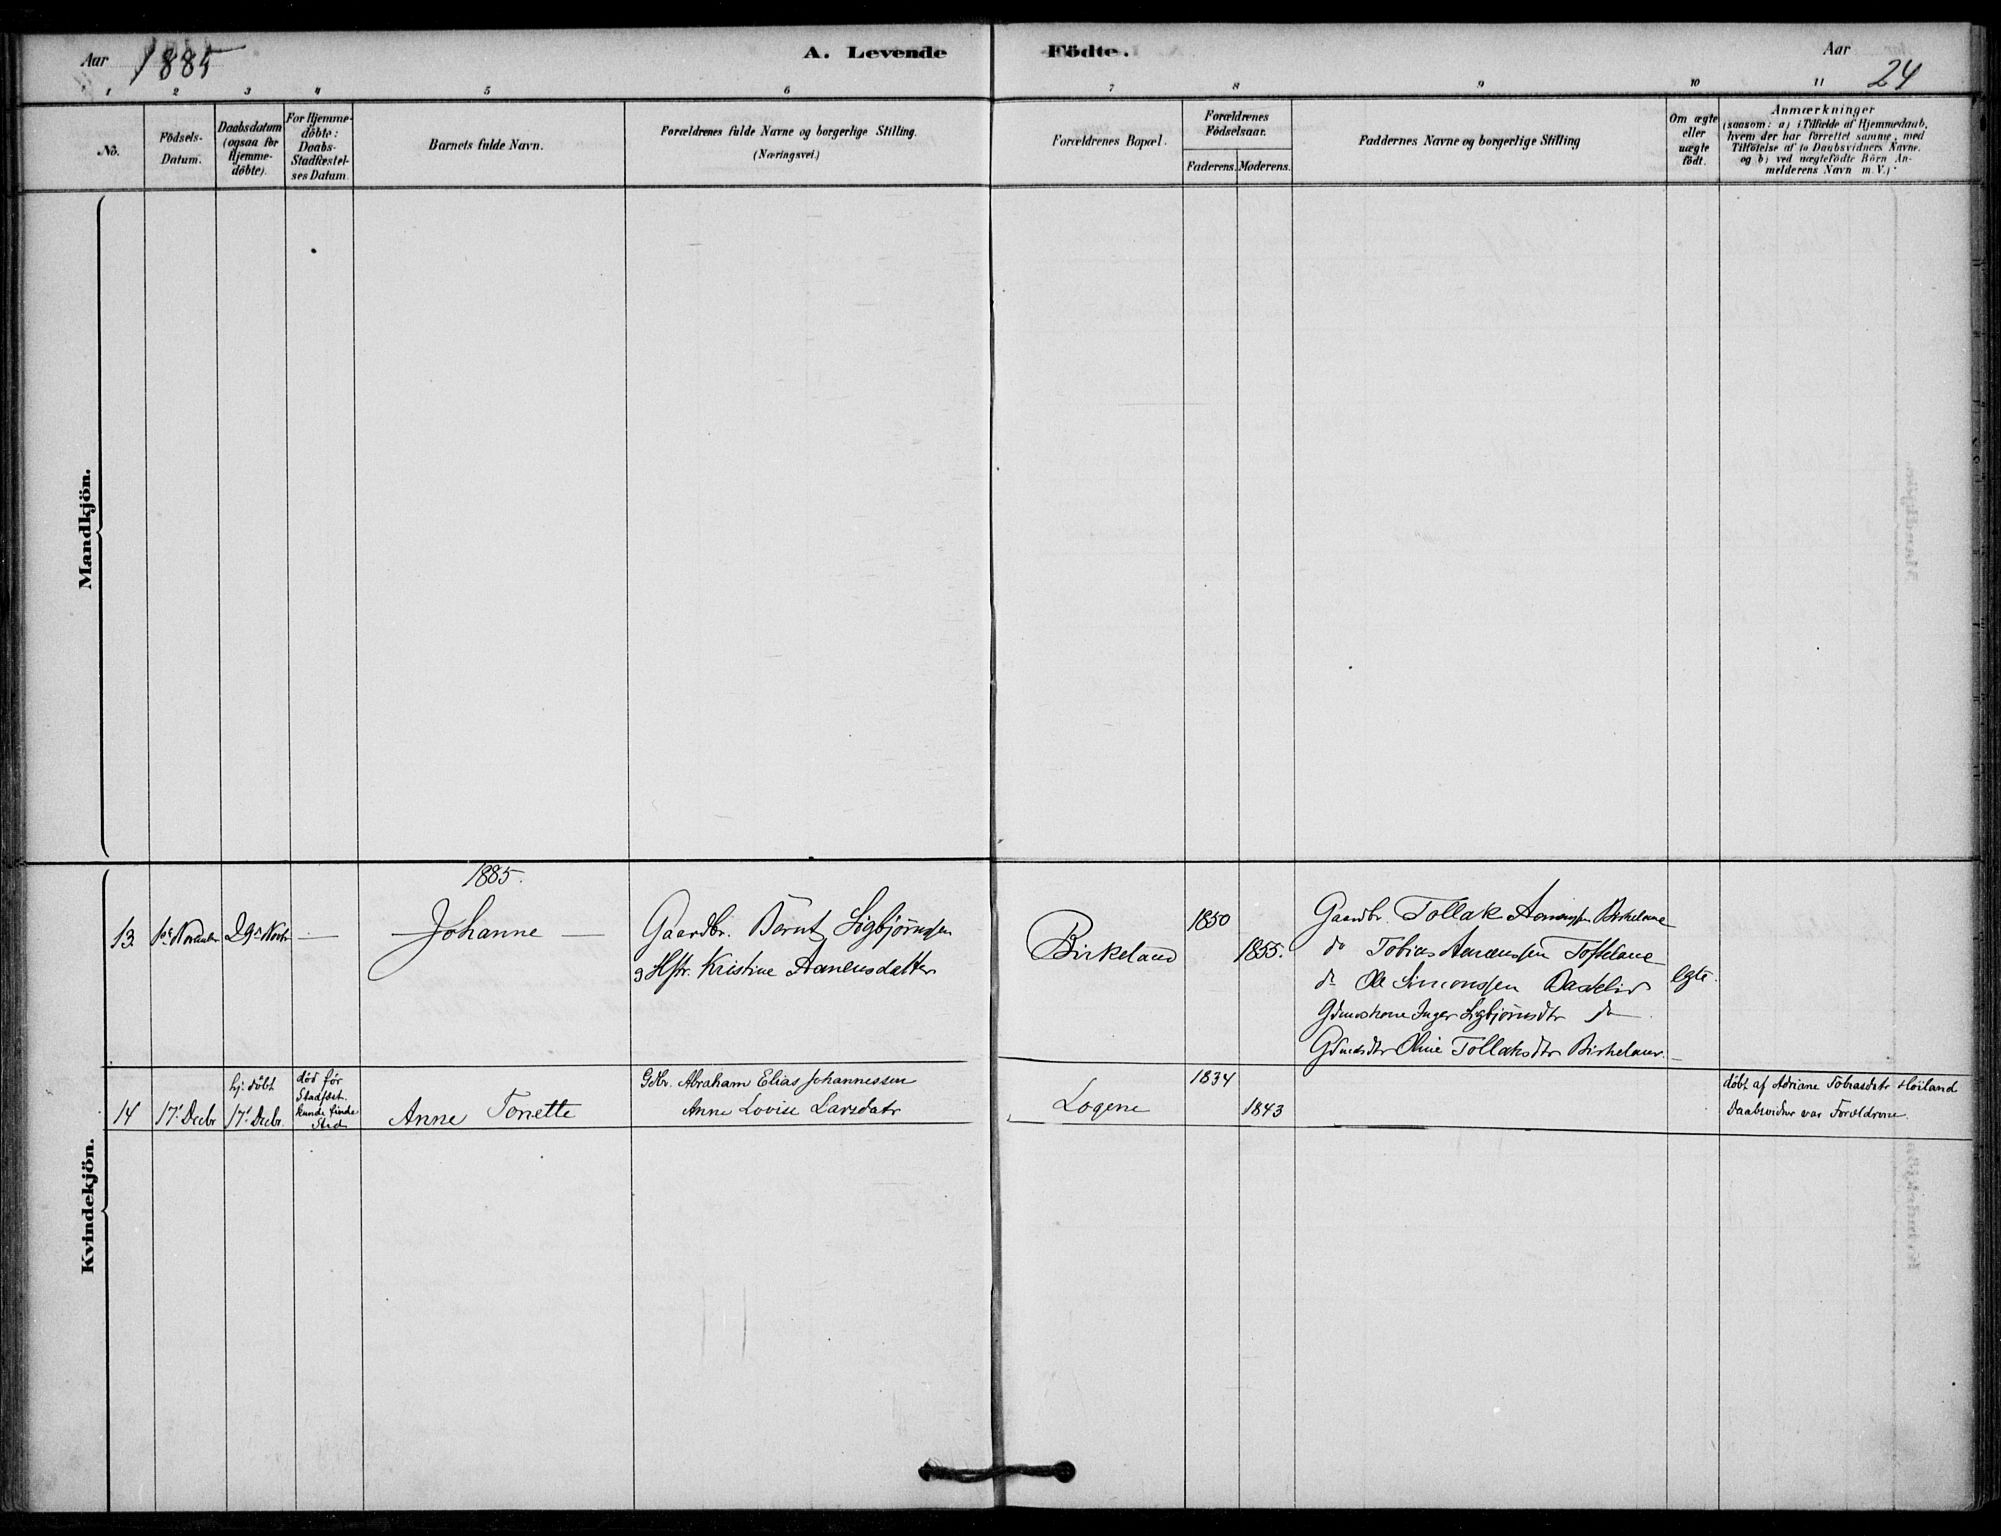 Aar 1885
A. Levende Födte.
Aar
24
1 2 3 4 5 6 7 8 9 10 11
No.
Födsels-
Datum.
Daabsdatum
(ogsaa for
Hjemme-
döbte).
For Hjemme-
döbte:
Daabs-
Stadfæstel-
ses Datum.
Barnets fulde Navn.
Forældrenes fulde Navne og borgerlige Stilling.
(Næringsvei.)
Forældrenes Bopæl.
Forældrenes
Födselsaar.
Faderens. Moderens.
Faddernes Navne og borgerlige Stilling
Om ægte
eller
uægte
födt.
Anmærkninger
(saasom: a) i Tilfælde af Hjemmedaab,
hvem der har forrettet samme, med
Tilföielse af to Daabsvidners Navne.
og b) ved uægtefödte Börn An-
melderens Navn m. V.)
Mandkjön.
Kvindekjön.
1885.
13.
29de Novbr
—
Johanne —
Gaardbr. Bernt Sigbjörnssen
og Hstr. Kristine Aanensdatter
Birkeland
1850
1855.
Gaardbr. Tollak Aanenssen Birkeland
do Tobias Aanenssen
do Ole Simonssen
Inger Sigbjörnsdtr do
Oline Tollaksdtr Birkeland
egte.
14
17de Decbr
hj. döbt
17de Decbr.
död för
Stadfæst.
kunde finde
Sted
Anne Tonette
Gdbr. Abraham Elias Johannessen
Anne Lovise Larsdatr
Logene
1834
1843
döbt af Adriane Tobiasdatr Höiland
Daabsvidner var Forældrene.